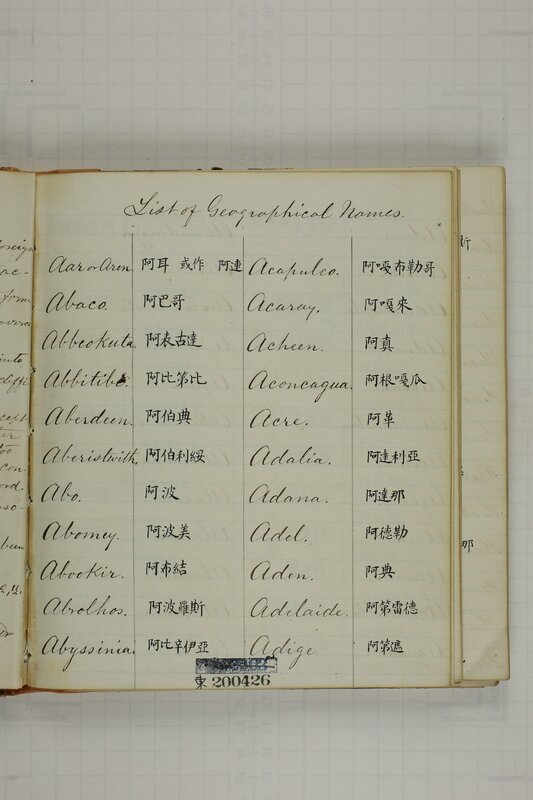 List of Geographical Names.
Aar or Aren. 阿耳 或作 阿連 Acapulco. 阿嘎布勒哥
Abaco. 阿巴哥 Acaray. 阿嘎來
Abbeokuta 阿表古達 Acheen. 阿真
Abbitibe. 阿比第比 Aconcagua. 阿根嘎瓜
Aberdeen. 阿伯典 Acre. 阿革
Aberistwith. 阿伯利綏 Adalia. 阿達利亞
Abo. 阿波 Adana. 阿達那
Abomey. 阿波美 Adel. 阿德勒
Abookir. 阿布結 Aden. 阿典
Abrolhos. 阿波羅斯 Adelaide. 阿第雷德
Abyssinia. 阿比辛伊亞 Adige. 阿第
東 200426
斯
那